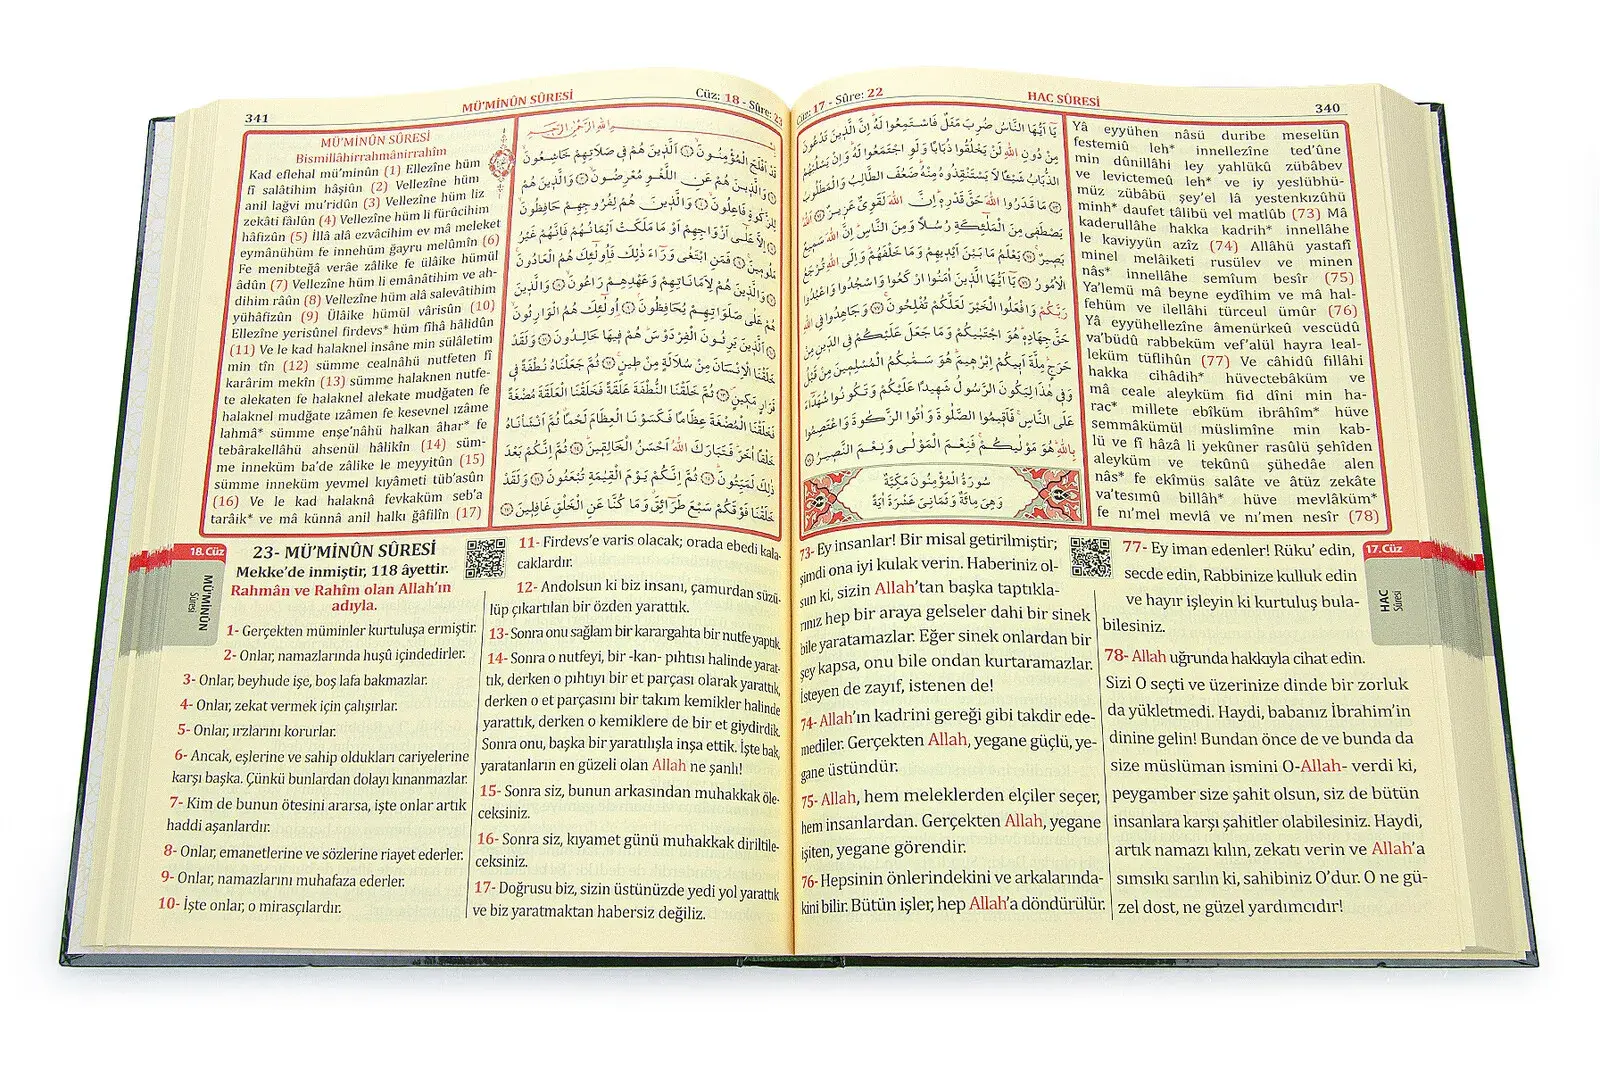 Cüz: 17 - Sûre: 22
HAC SÛRESİ
340
يَٓا اَيُّهَا النَّاسُ ضُرِبَ مَثَلٌ فَاسْتَمِعُوا لَهُ اِنَّ الَّذ۪ينَ تَدْعُونَ
مِنْ دُونِ اللّٰهِ لَنْ يَخْلُقُوا ذُبَابًا وَلَوِ اجْتَمَعُوا لَهُ وَاِنْ يَسْلُبْهُمُ
الذُّبَابُ شَيْـًٔا لَا يَسْتَنْقِذُوهُ مِنْهُ ضَعُفَ الطَّالِبُ وَالْمَطْلُوبُ
﴿٧٣﴾ مَا قَدَرُوا اللّٰهَ حَقَّ قَدْرِه۪ اِنَّ اللّٰهَ لَقَوِيٌّ عَز۪يزٌ ﴿٧٤﴾ اَللّٰهُ
يَصْطَف۪ي مِنَ الْمَلٰٓئِكَةِ رُسُلًا وَمِنَ النَّاسِ اِنَّ اللّٰهَ سَم۪يعٌ
بَص۪يرٌ ﴿٧٥﴾ يَعْلَمُ مَا بَيْنَ اَيْد۪يهِمْ وَمَا خَلْفَهُمْ وَاِلَى اللّٰهِ تُرْجَعُ
الْاُمُورُ ﴿٧٦﴾ يَٓا اَيُّهَا الَّذ۪ينَ اٰمَنُوا ارْكَعُوا وَاسْجُدُوا وَاعْبُدُوا
رَبَّكُمْ وَافْعَلُوا الْخَيْرَ لَعَلَّكُمْ تُفْلِحُونَ ﴿٧٧﴾ وَجَاهِدُوا فِي اللّٰهِ
حَقَّ جِهَادِه۪ هُوَ اجْتَبٰيكُمْ وَمَا جَعَلَ عَلَيْكُمْ فِي الدّ۪ينِ مِنْ
حَرَجٍ مِلَّةَ اَب۪يكُمْ اِبْرٰه۪يمَ هُوَ سَمّٰيكُمُ الْمُسْلِم۪ينَ مِنْ قَبْلُ
وَف۪ي هٰذَا لِيَكُونَ الرَّسُولُ شَه۪يدًا عَلَيْكُمْ وَتَكُونُوا شُهَدَٓاءَ
عَلَى النَّاسِ فَاَق۪يمُوا الصَّلٰوةَ وَاٰتُوا الزَّكٰوةَ وَاعْتَصِمُوا
بِاللّٰهِ هُوَ مَوْلٰيكُمْ فَنِعْمَ الْمَوْلٰى وَنِعْمَ النَّص۪يرُ ﴿٧٨﴾
سُورَةُ الْمُؤْمِنُونَ مَكِّيَّةٌ
وَهِيَ مِائَةٌ وَثَمَانِيَ عَشْرَةَ اٰيَةً
Yâ eyyühen nâsü duribe meselün
festemiû leh* innellezîne ted'ûne
min dûnillâhi ley yahlükû zübâbev
ve levictemeû leh* ve iy yeslübhü-
müz zübâbü şey'el lâ yestenkızûhü
minh* daufet tâlibü vel matlûb (73) Mâ
kaderullâhe hakka kadrih* innellâhe
le kaviyyün azîz (74) Allâhü yastafî
minel melâiketi rusülev ve minen
nâs* innellâhe semîum besîr (75)
Ya'lemü mâ beyne eydîhim ve mâ hal-
fehüm ve ilellâhi türceul ümûr (76)
Yâ eyyühellezîne âmenürkeû vescüdû
va'büdû rabbeküm vef'alül hayra leal-
leküm tüflihûn (77) Ve câhidû fillâhi
hakka cihâdih* hüvectebâküm ve
mâ ceale aleyküm fid dîni min ha-
rac* millete ebîküm ibrâhîm* hüve
semmâkümül müslimîne min kab-
lü ve fî hâzâ li yekûner rasûlü şehîden
aleyküm ve tekûnû şühedâe alen
nâs* fe ekîmüs salâte ve âtüz zekâte
va'tesımû billâh* hüve mevlâküm*
fe nı'mel mevlâ ve nı'men nesîr (78)
73- Ey insanlar! Bir misal getirilmiştir;
şimdi ona iyi kulak verin. Haberiniz ol-
sun ki, sizin Allah'tan başka taptıkla-
rınız hep bir araya gelseler dahi bir sinek
bile yaratamazlar. Eğer sinek onlardan bir
şey kapsa, onu bile ondan kurtaramazlar.
İsteyen de zayıf, istenen de!
74- Allah'ın kadrini gereği gibi takdir ede-
mediler. Gerçekten Allah, yegane güçlü, ye-
gane üstündür.
75- Allah, hem meleklerden elçiler seçer,
hem insanlardan. Gerçekten Allah, yegane
işiten, yegane görendir.
76- Hepsinin önlerindekini ve arkalarında-
kini bilir. Bütün işler, hep Allah'a döndürülür.
77- Ey iman edenler! Rükû' edin,
secde edin, Rabbinize kulluk edin
ve hayır işleyin ki kurtuluş bula-
bilesiniz.
78- Allah uğrunda hakkıyla cihat edin.
Sizi O seçti ve üzerinize dinde bir zorluk
da yükletmedi. Haydi, babanız İbrahim'in
dinine gelin! Bundan önce de ve bunda da
size müslüman ismini O-Allah- verdi ki,
peygamber size şahit olsun, siz de bütün
insanlara karşı şahitler olabilesiniz. Haydi,
artık namazı kılın, zekatı verin ve Allah'a
sımsıkı sarılın ki, sahibiniz O'dur. O ne gü-
zel dost, ne güzel yardımcıdır!
17. Cüz
HAC
Sûresi
341
MÜ'MİNÛN SÛRESİ
Cüz: 18 - Sûre: 23
MÜ'MİNÛN SÛRESİ
Bismillâhirrahmânirrahîm
Kad eflehal mü'minûn (1) Ellezîne hüm
fî salâtihim hâşiûn (2) Vellezîne hüm
anil lağvi mu'ridûn (3) Vellezîne hüm liz
zekâti fâilûn (4) Vellezîne hüm li fürûcihim
hâfizûn (5) İllâ alâ ezvâcihim ev mâ meleket
eymânühüm fe innehüm ğayru melûmîn (6)
Fe menibteğâ verâe zâlike fe ülâike hümül
âdûn (7) Vellezîne hüm li emânâtihim ve ah-
dihim râûn (8) Vellezîne hüm alâ salevâtihim
yühâfizûn (9) Ülâike hümül vârisûn (10)
Ellezîne yerisûnel firdevs* hüm fîhâ hâlidûn
(11) Ve le kad halaknel insâne min sülâletim
min tîn (12) sümme cealnâhü nutfeten fî
karârim mekîn (13) sümme halaknen nutfe-
te alekaten fe halaknel alekate mudğaten fe
halaknel mudğate ızâmen fe kesevnel ızâme
lahmâ* sümme enşe'nâhü halkan âhar* fe
tebârakellâhü ahsenül hâlikîn (14) süm-
me inneküm ba'de zâlike le meyyitûn (15)
sümme inneküm yevmel kıyâmeti tüb'asûn
(16) Ve le kad halaknâ fevkaküm seb'a
tarâik* ve mâ künnâ anil halkı ğafilîn (17)
بِسْمِ اللّٰهِ الرَّحْمٰنِ الرَّح۪يمِ
قَدْ اَفْلَحَ الْمُؤْمِنُونَ ﴿١﴾ اَلَّذ۪ينَ هُمْ ف۪ي صَلَاتِهِمْ خَاشِعُونَ
﴿٢﴾ وَالَّذ۪ينَ هُمْ عَنِ اللَّغْوِ مُعْرِضُونَ ﴿٣﴾ وَالَّذ۪ينَ هُمْ
لِلزَّكٰوةِ فَاعِلُونَ ﴿٤﴾ وَالَّذ۪ينَ هُمْ لِفُرُوجِهِمْ حَافِظُونَ
﴿٥﴾ اِلَّا عَلٰٓى اَزْوَاجِهِمْ اَوْ مَا مَلَكَتْ اَيْمَانُهُمْ فَاِنَّهُمْ غَيْرُ
مَلُوم۪ينَ ﴿٦﴾ فَمَنِ ابْتَغٰى وَرَٓاءَ ذٰلِكَ فَاُو۬لٰٓئِكَ هُمُ الْعَادُونَ
﴿٧﴾ وَالَّذ۪ينَ هُمْ لِاَمَانَاتِهِمْ وَعَهْدِهِمْ رَاعُونَ ﴿٨﴾ وَالَّذ۪ينَ
هُمْ عَلٰى صَلَوَاتِهِمْ يُحَافِظُونَ ﴿٩﴾ اُو۬لٰٓئِكَ هُمُ الْوَارِثُونَ
﴿١٠﴾ اَلَّذ۪ينَ يَرِثُونَ الْفِرْدَوْسَ هُمْ ف۪يهَا خَالِدُونَ ﴿١١﴾ وَلَقَدْ
خَلَقْنَا الْاِنْسَانَ مِنْ سُلَالَةٍ مِنْ ط۪ينٍ ﴿١٢﴾ ثُمَّ جَعَلْنَاهُ نُطْفَةً ف۪ي
قَرَارٍ مَك۪ينٍ ﴿١٣﴾ ثُمَّ خَلَقْنَا النُّطْفَةَ عَلَقَةً فَخَلَقْنَا الْعَلَقَةَ مُضْغَةً
فَخَلَقْنَا الْمُضْغَةَ عِظَامًا فَكَسَوْنَا الْعِظَامَ لَحْمًا ثُمَّ اَنْشَأْنَاهُ
خَلْقًا اٰخَرَ فَتَبَارَكَ اللّٰهُ اَحْسَنُ الْخَالِق۪ينَ ﴿١٤﴾ ثُمَّ اِنَّكُمْ بَعْدَ
ذٰلِكَ لَمَيِّتُونَ ﴿١٥﴾ ثُمَّ اِنَّكُمْ يَوْمَ الْقِيٰمَةِ تُبْعَثُونَ ﴿١٦﴾ وَلَقَدْ
خَلَقْنَا فَوْقَكُمْ سَبْعَ طَرَٓائِقَ وَمَا كُنَّا عَنِ الْخَلْقِ غَافِل۪ينَ ﴿١٧﴾
18. Cüz
MÜ'MİNÛN
Sûresi
23- MÜ'MİNÛN SÛRESİ
Mekke'de inmiştir, 118 âyettir.
Rahmân ve Rahîm olan Allah'ın
adıyla.
1- Gerçekten müminler kurtuluşa ermiştir.
2- Onlar, namazlarında huşû içindedirler.
3- Onlar, beyhude işe, boş lafa bakmazlar.
4- Onlar, zekat vermek için çalışırlar.
5- Onlar, ırzlarını korurlar.
6- Ancak, eşlerine ve sahip oldukları cariyelerine
karşı başka. Çünkü bunlardan dolayı kınanmazlar.
7- Kim de bunun ötesini ararsa, işte onlar artık
haddi aşanlardır.
8- Onlar, emanetlerine ve sözlerine riayet ederler.
9- Onlar, namazlarını muhafaza ederler.
10- İşte onlar, o mirasçılardır.
11- Firdevs'e varis olacak; orada ebedi kala-
caklardır.
12- Andolsun ki biz insanı, çamurdan süzü-
lüp çıkartılan bir özden yarattık.
13- Sonra onu sağlam bir karargahta bir nutfe yaptık.
14- Sonra o nutfeyi, bir -kan- pıhtısı halinde yarat-
tık, derken o pıhtıyı bir et parçası olarak yarattık,
derken o et parçasını bir takım kemikler halinde
yarattık, derken o kemiklere de bir et giydirdik.
Sonra onu, başka bir yaratılışla inşa ettik. İşte bak,
yaratanların en güzeli olan Allah ne şanlı!
15- Sonra siz, bunun arkasından muhakkak öle-
ceksiniz.
16- Sonra siz, kıyamet günü muhakkak diriltile-
ceksiniz.
17- Doğrusu biz, sizin üstünüzde yedi yol yarattık
ve biz yaratmaktan habersiz değiliz.